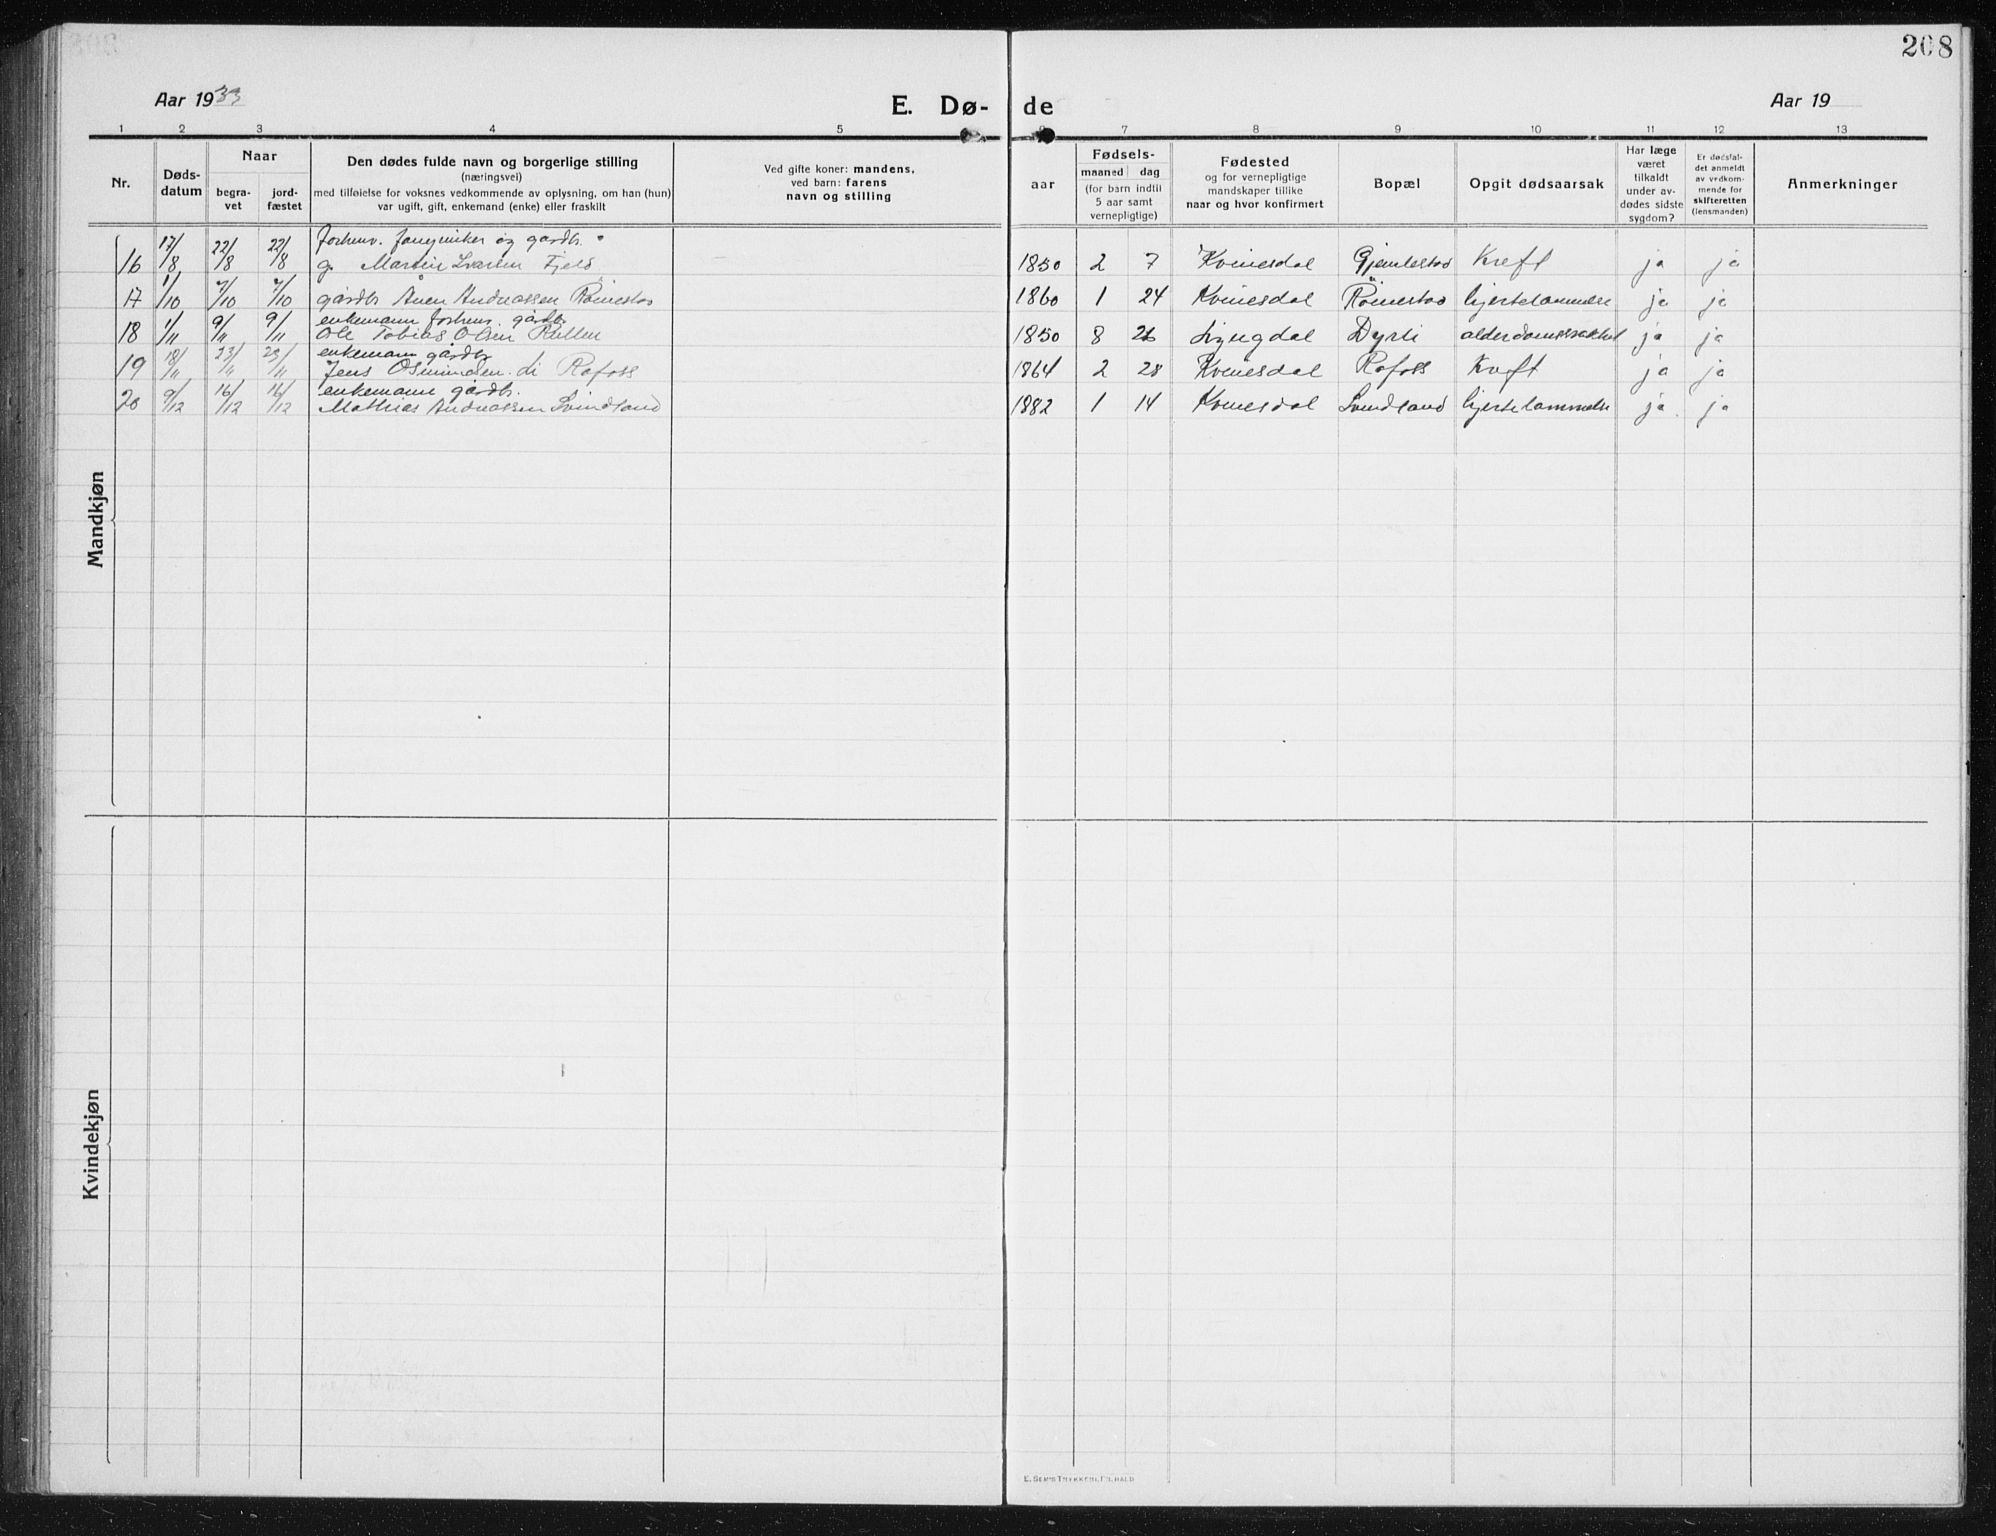 208
Aar 1933
E. Dø-
de
Aar 19
1 2 3 4 5 6 7 8 9 10 11 12 13
Nr.
Døds-
datum
Naar
begra-
vet
jord-
fæstet
Den dødes fulde navn og borgerlige stilling
(næringsvei)
med tilføielse for voksnes vedkommende av oplysning, om han (hun)
var ugift, gift, enkemand (enke) eller fraskilt
Ved gifte koner: mandens,
ved barn: farens
navn og stilling
aar
Fødsels-
maaned dag
(for barn indtil
5 aar samt
vernepligtige)
Fødested
og for vernepligtige
mandskaper tillike
naar og hvor konfirmert
Bopæl
Opgit dødsaarsak
Har læge
været
tilkaldt
under av-
dødes sidste
sygdom?
Er dødsfal-
det anmeldt
av vedkom-
mende for
skifteretten
(lensmanden)
Anmerkninger
Mandkjøn
forhenv. og gårdbr.
16 17/8 22/8 22/8 g. Martin Ivarsen Fjeld 1850 2 7 Kvinesdal Gjemlestad Kreft ja ja
17 1/10 7/10 7/10 gårdbr Ånen Andreassen Röinestad 1860 1 24 Kvinesdal Röinestad hjertelammelse ja ja
enkemann forhenv. gårdbr
18 1/11 9/11 9/11 Ole Tobias Olsen 1850 8 26 Lyngdal Dyrli alderdomssvakhet ja ja
enkemann gårdbr
19 18/11 23/11 23/11 Jens Osmundsen Rafoss 1864 2 28 Kvinesdal Rafoss Kreft ja ja
enkemann gårdbr.
20 9/12 16/12 16/12 Mathias Andreassen Svindland 1882 1 14 Kvinesdal Svindland hjertelammelse ja ja
Kvindekjøn
E. SEM'S TRYKKERI, FR.HALD